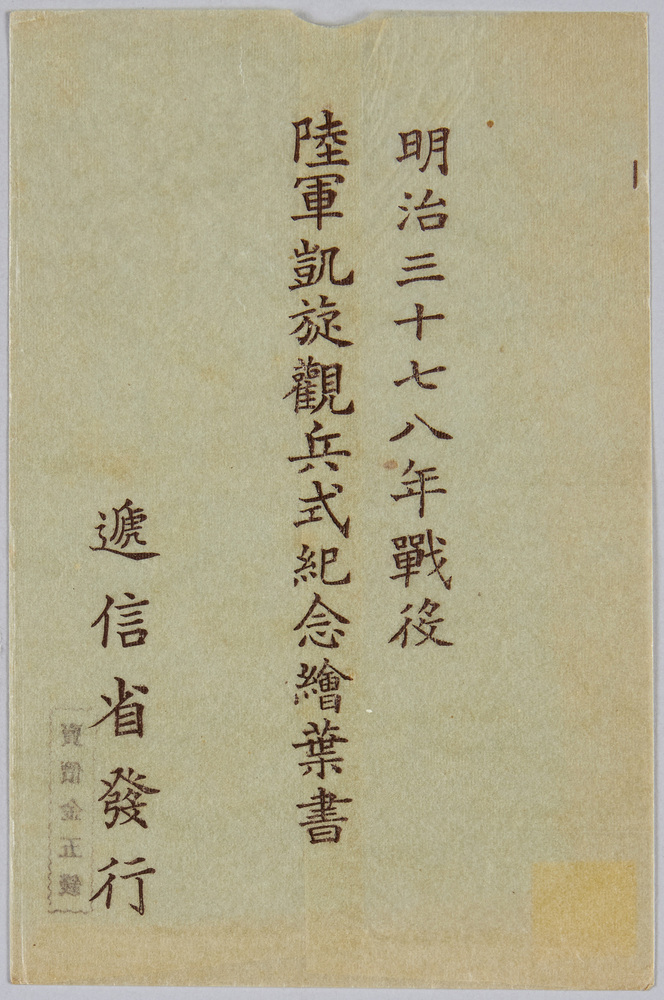 明治三十七八年戰役
陸軍凱旋觀兵式紀念繪葉書
遞信省發行
賣價金五錢